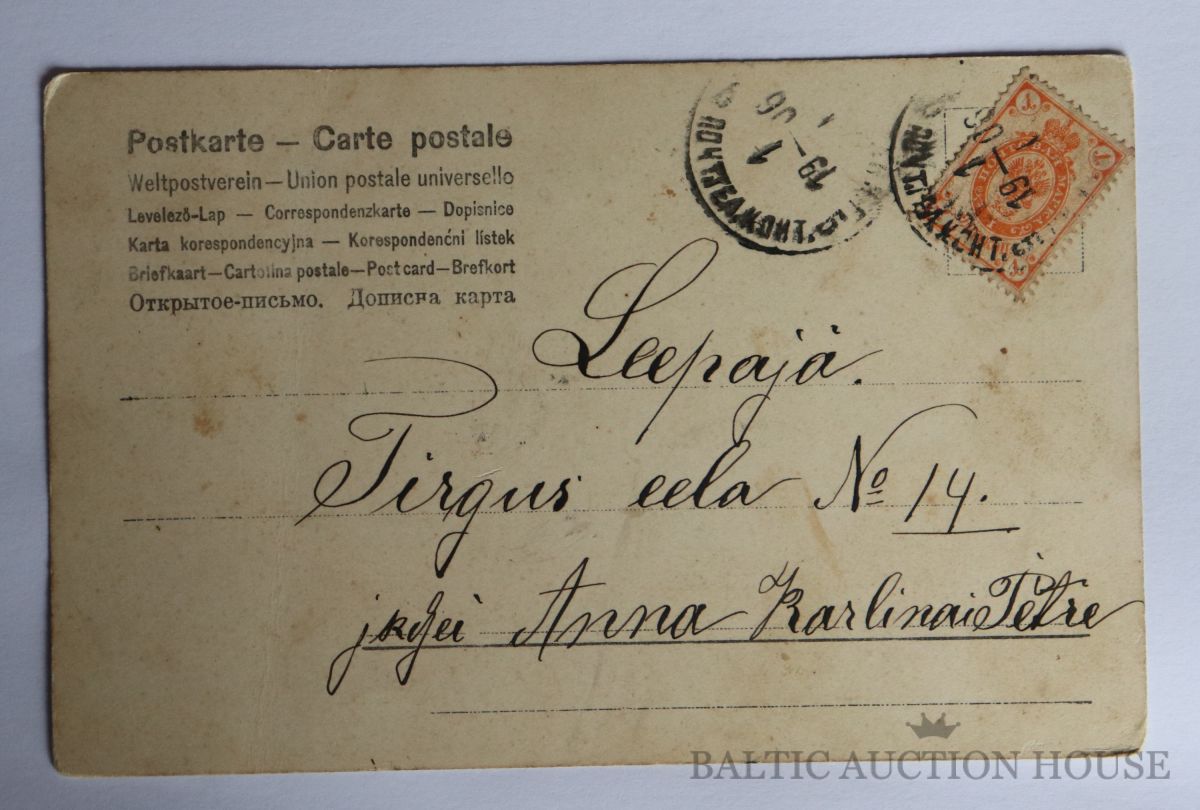 Postkarte — Carte postale
Weltpostverein — Union postale universelle
Levelező-Lap — Correspondenzkarte — Dopisnice
Karta korespondencyjna — Korespondenční lístek
Briefkaart — Cartolina postale — Post card — Brefkort
Открытое-письмо. Дописна карта
19 — 1 06
19 — 1 06
1
1
1
Leepajâ.
Tirgus eela № 14.
Anna Karlinai Pètre
BALTIC AUCTION HOUSE